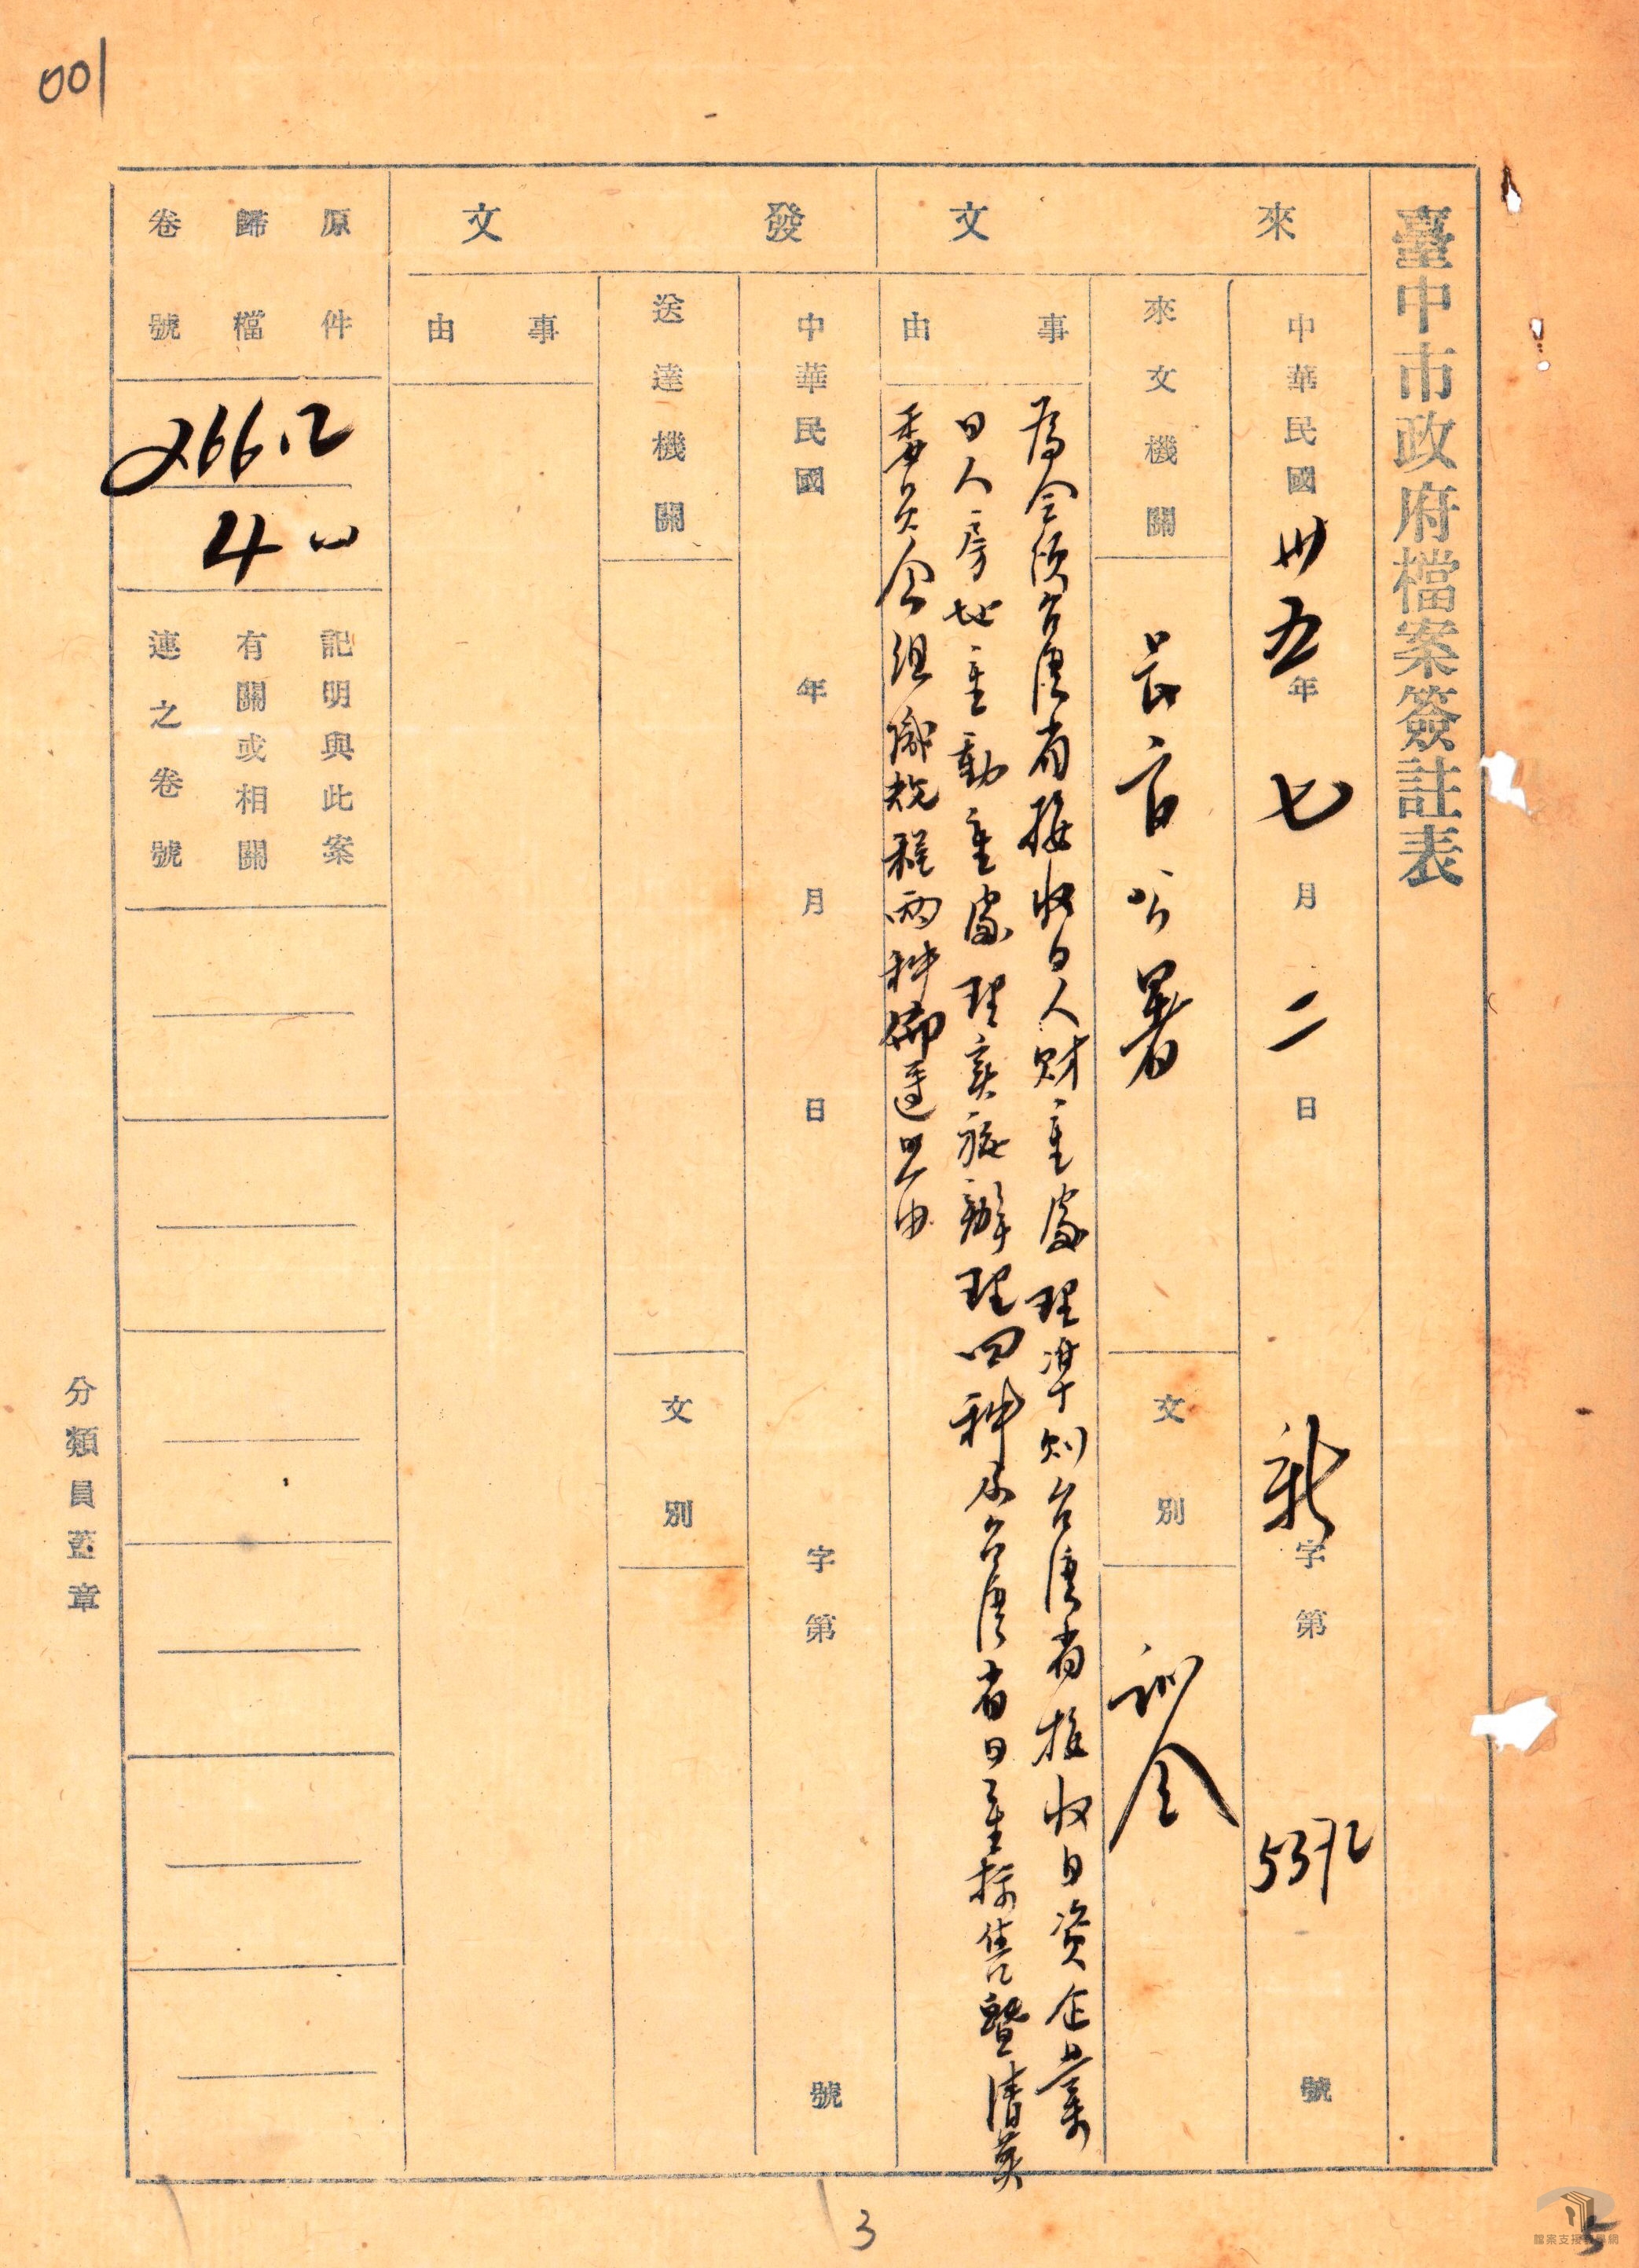 001
臺中市政府檔案簽註表
來文
中華民國卅五年七月二日 字第 號
來文機關 長官公署
文別 訓令
事由
為令頒台灣省接收日人財產處理準則台灣省接收日資企業
日人房地產動產處理實施辦理四種及台灣省日產標售暨清算
委員會組織規程兩種希遵照由
發文
中華民國 年 月 日 字第 號
送達機關
文別
事由
原件歸檔卷號
266.2
4
記明與此案有關或相關連之卷號
分類員蓋章
3
5
檔案支援教學網